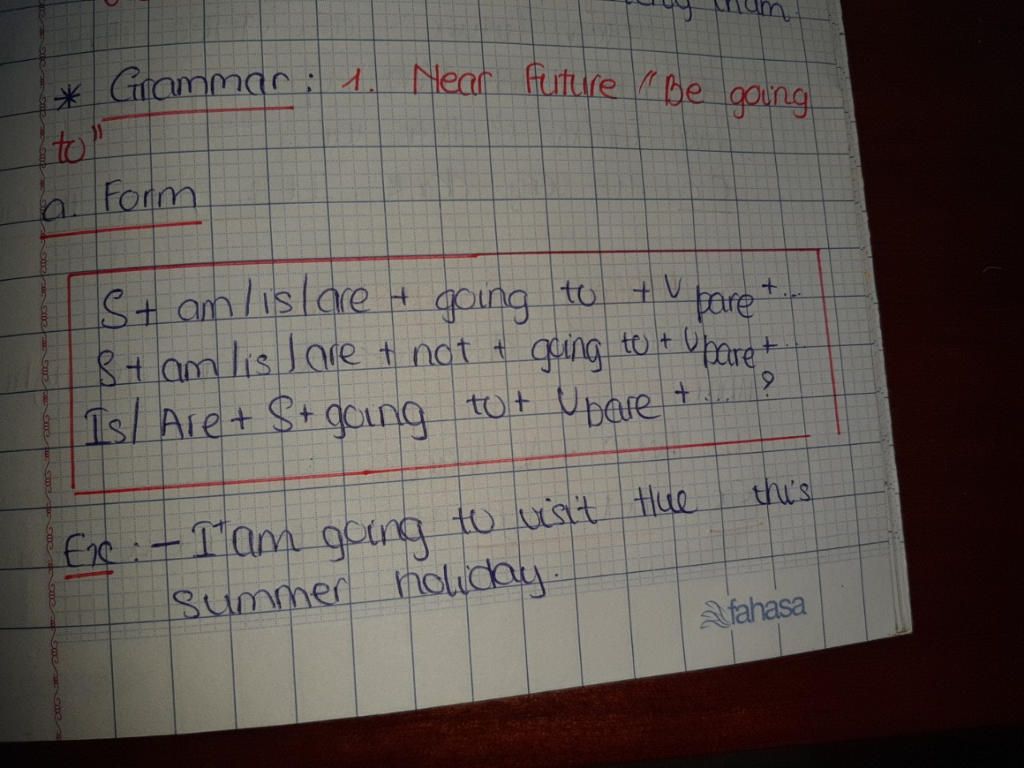 tham
* Grammar: 1. Near Future "Be going
to"
a. Form
S + am/is/are + going to + V bare + ...
S + am/is/are + not + going to + V bare + ...
Is/Are + S + going to + V bare + ......?
Ex: - I am going to visit Hue this
summer holiday.
fahasa